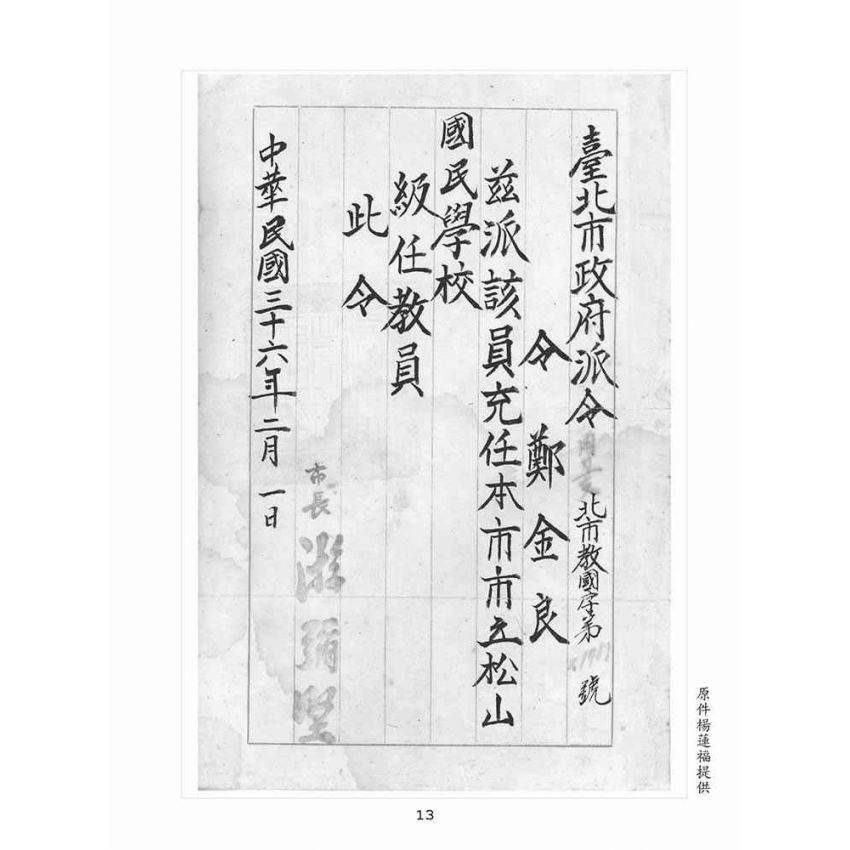 臺北市政府派令 北市教國字第 號
令 鄭金良
茲派該員充任本市市立松山
國民學校
級任教員
此令
市長 游彌堅
中華民國三十六年二月一日
原件楊蓮福提供
13